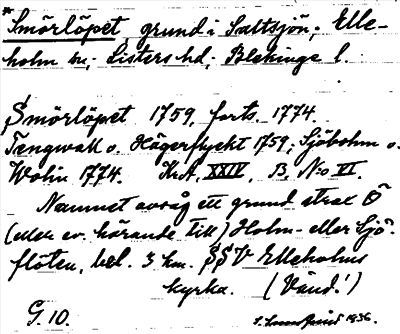 * Smörlöpet, grund i Saltsjön; Elle-
holm sn; Listers hd; Blekinge l.
Smörlöpet 1759, forts. 1774.
Tengwall o. Hägerflycht 1759; Sjöbohm o.
Wolin 1774. KrA, XXIV, B, No VI.
Namnet avsåg ett grund strax Ö
(eller ev. hörande till) Holm- eller Sjö-
flöten, bel. 3 km. SSV Elleholms
kyrka. (Vänd!)
G. 10. 1936.